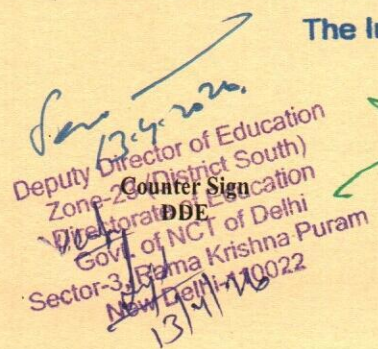 The I
13.4.2026
Deputy Director of Education
Zone-2 (District South)
Counter Sign
Directorate of Education
DDE
Govt. of NCT of Delhi
Sector-3, Rama Krishna Puram
New Delhi-110022
13/4/26